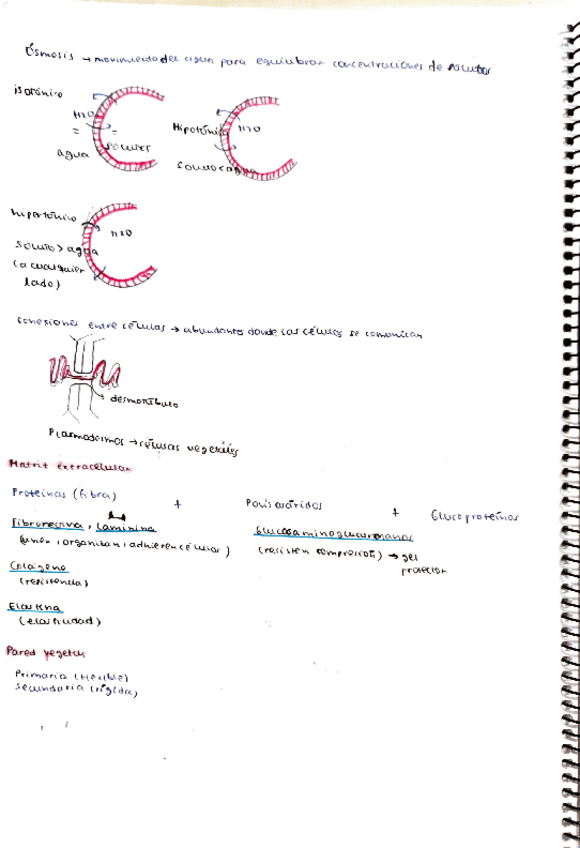 Ósmosis → movimiento del agua para equilibrar concentraciones de soluto
isotónico
H2O
= =
agua
soluto
Hipotónico
H2O
soluto < agua
hipertónico
H2O
soluto > agua
(a cualquier
lado)
Conexiones entre células → abundante donde las células se comunican
desmotúbulo
Plasmodesmos → células vegetales
Matriz extracelular
Proteínas (fibra) + Polisacáridos + Glucoproteínas
Fibronectina, Laminina
(unen, organizan, adhieren células)
Glucosaminoglucuronanos
(resisten compresión) → gel
protector
Colágeno
(resistencia)
Elastina
(elasticidad)
Pared vegetal
Primaria (flexible)
Secundaria (rígida)